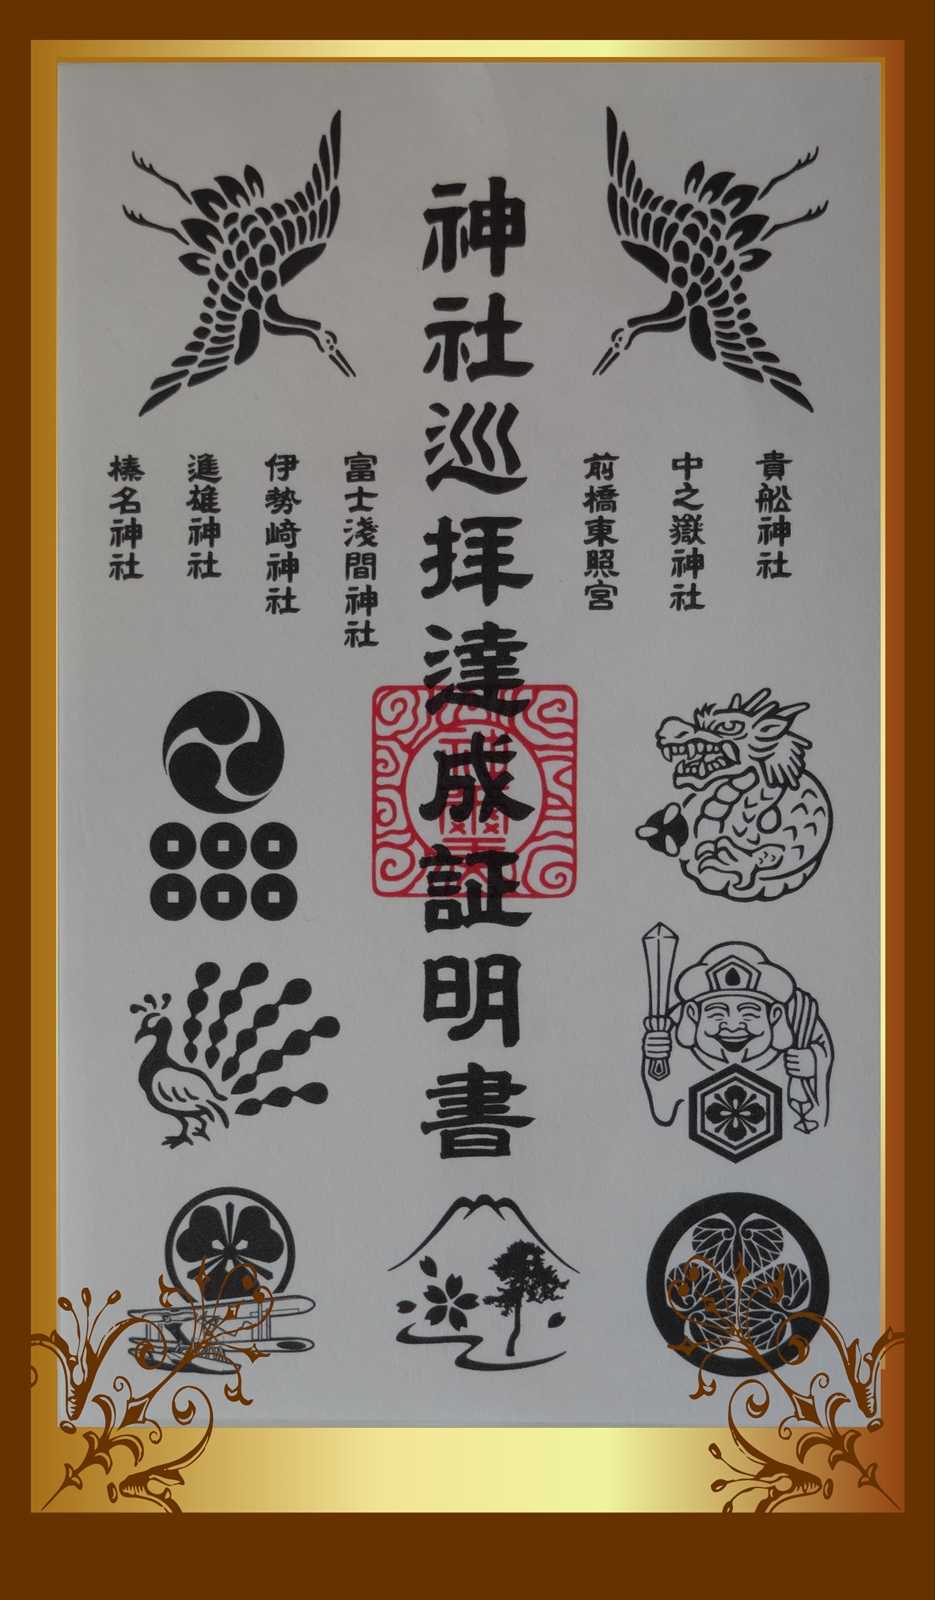 貴舩神社
中之嶽神社
前橋東照宮
神社巡拝達成証明書
富士浅間神社
伊勢崎神社
進雄神社
榛名神社